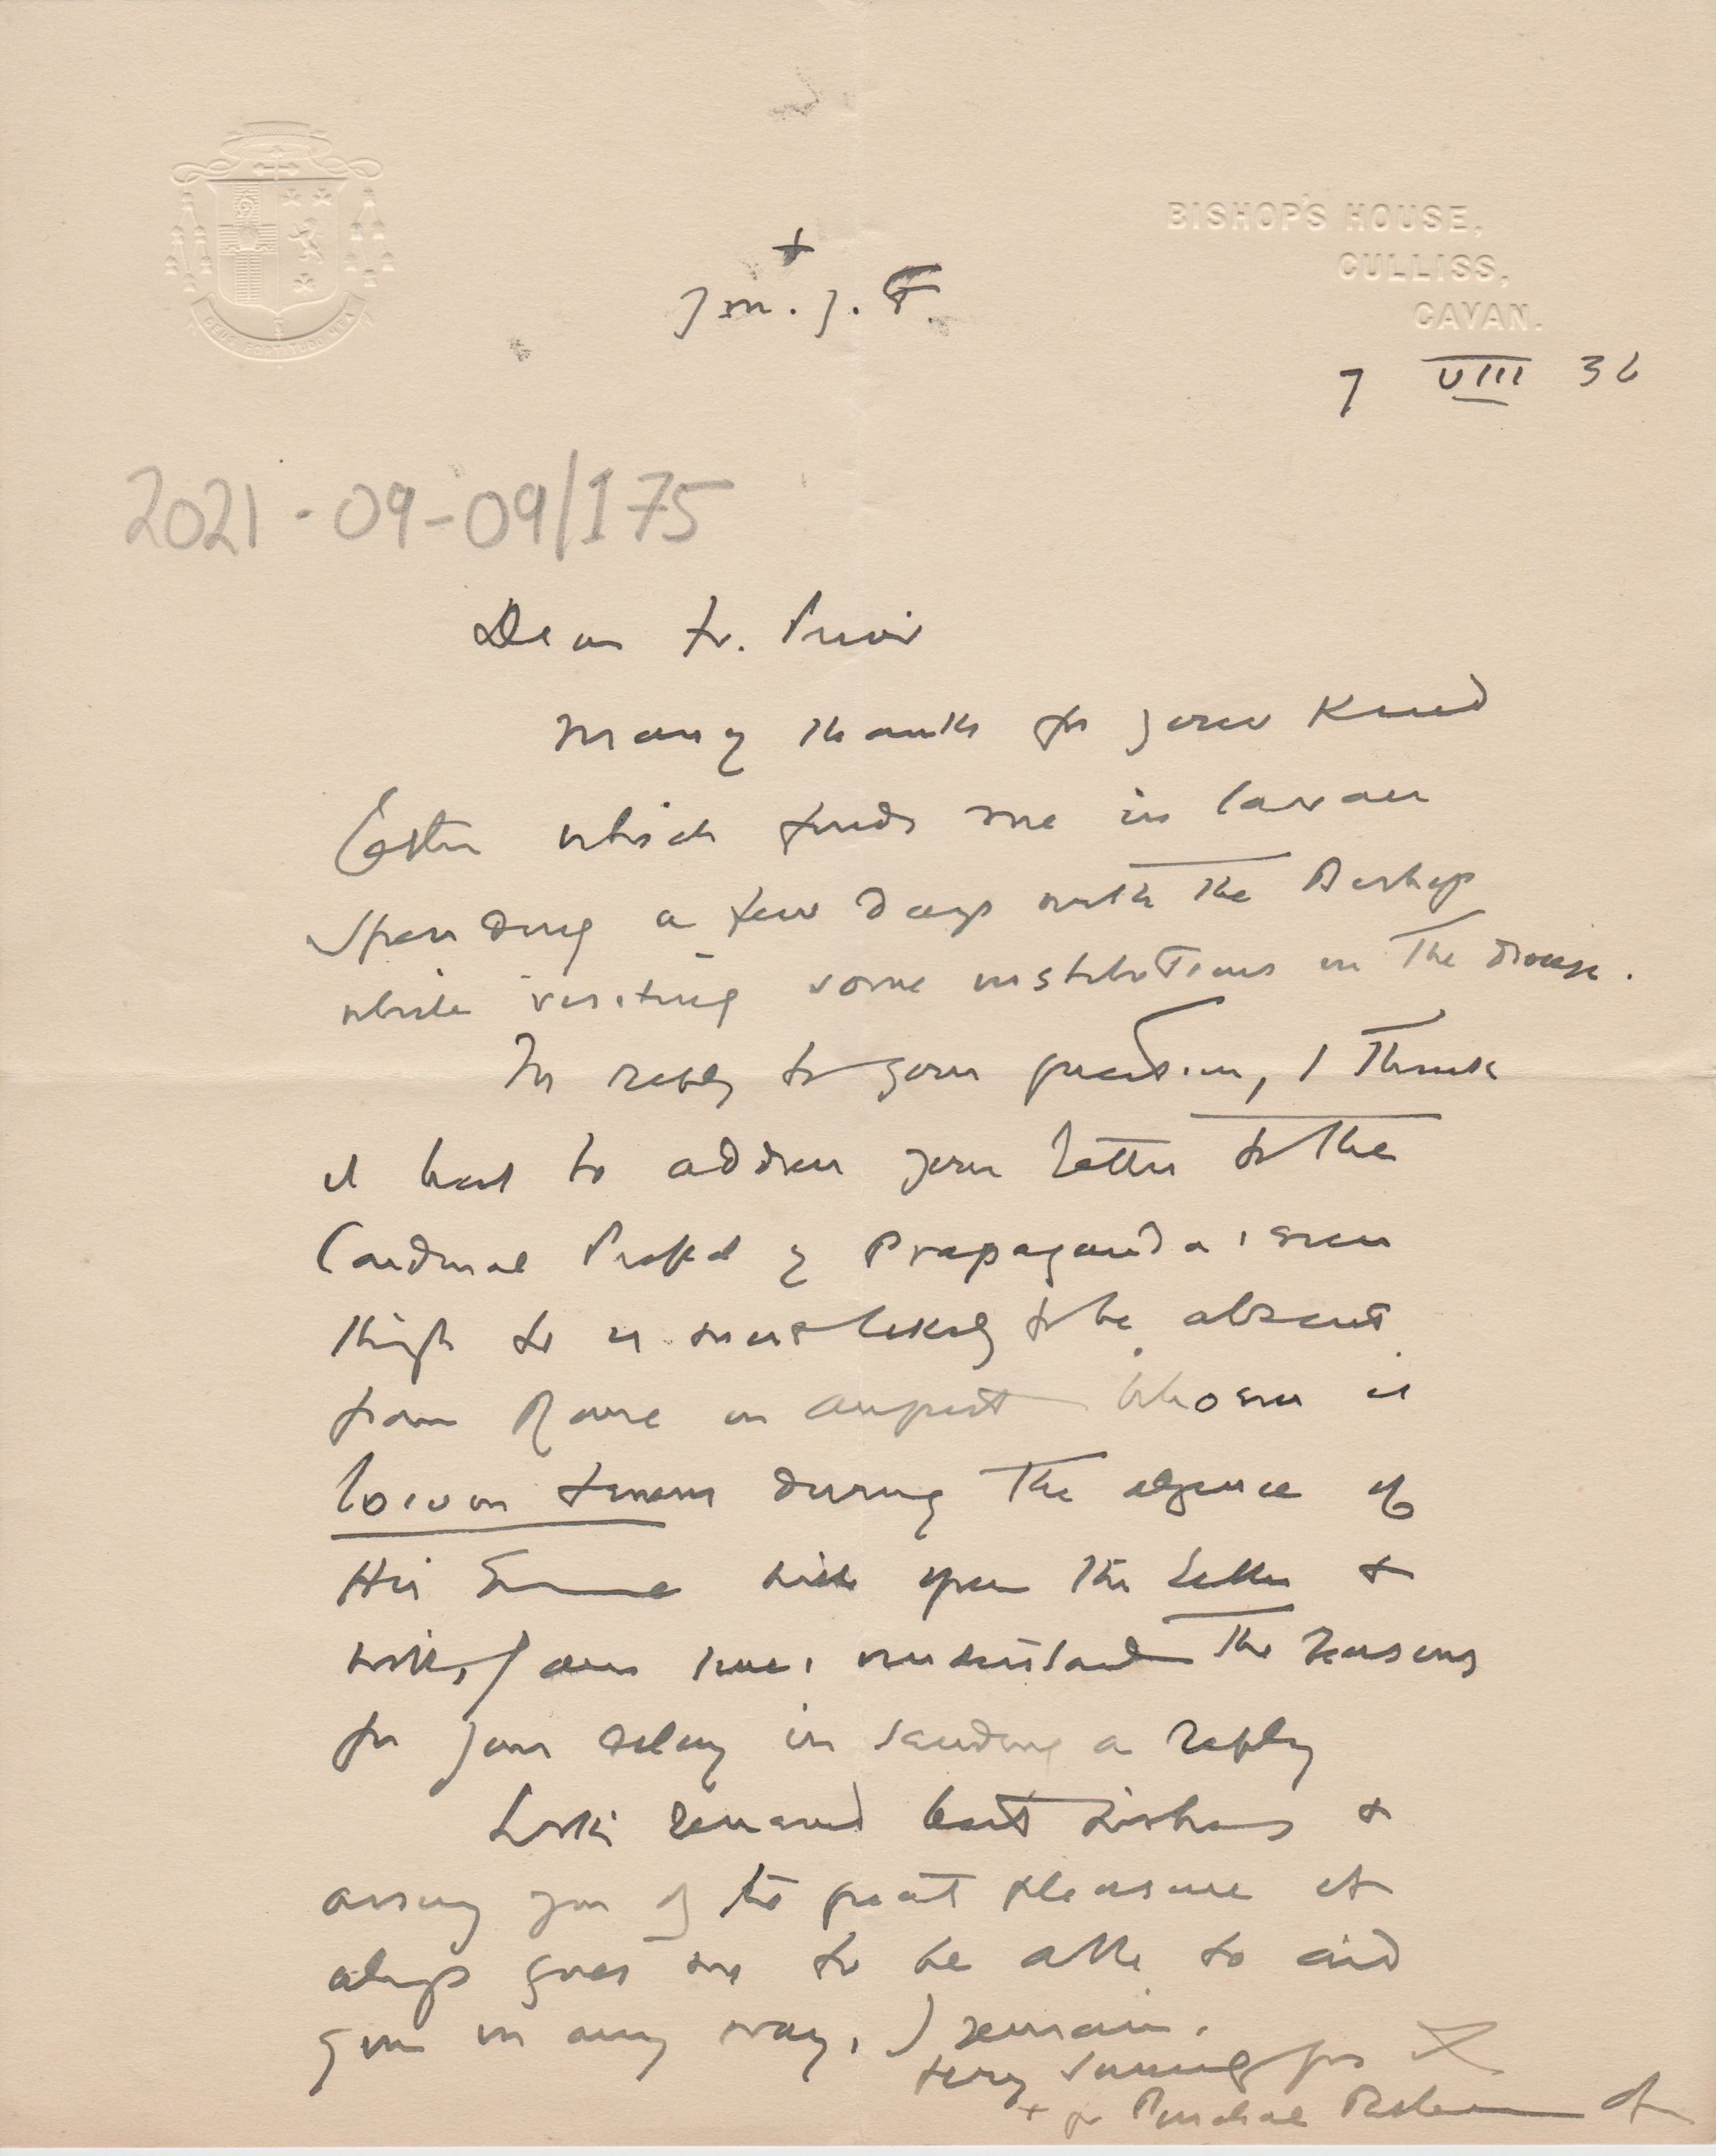 DEUS FORTITUDO MEA
BISHOP'S HOUSE,
CULLISS,
CAVAN.
+
J. M. J. F.
7 VIII 36
2021-09-09/175
Dear Fr. Prior
Many thanks for your kind
letter which finds me in Cavan
spending a few days with the Bishop
while visiting some institutions in the diocese.
In reply to your question, I think
it best to address your letter to the
Cardinal Prefect of Propaganda, even
though he is most likely to be absent
from Rome in August. Whoever is
locum tenens during the absence of
His Eminence will open the letter &
will, I am sure, understand the reasons
for your delay in sending a reply
With renewed best wishes &
assuring you of the great pleasure it
always gives me to be able to aid
you in any way, I remain,
Very sincerely yrs in X
+ Fr Paschal